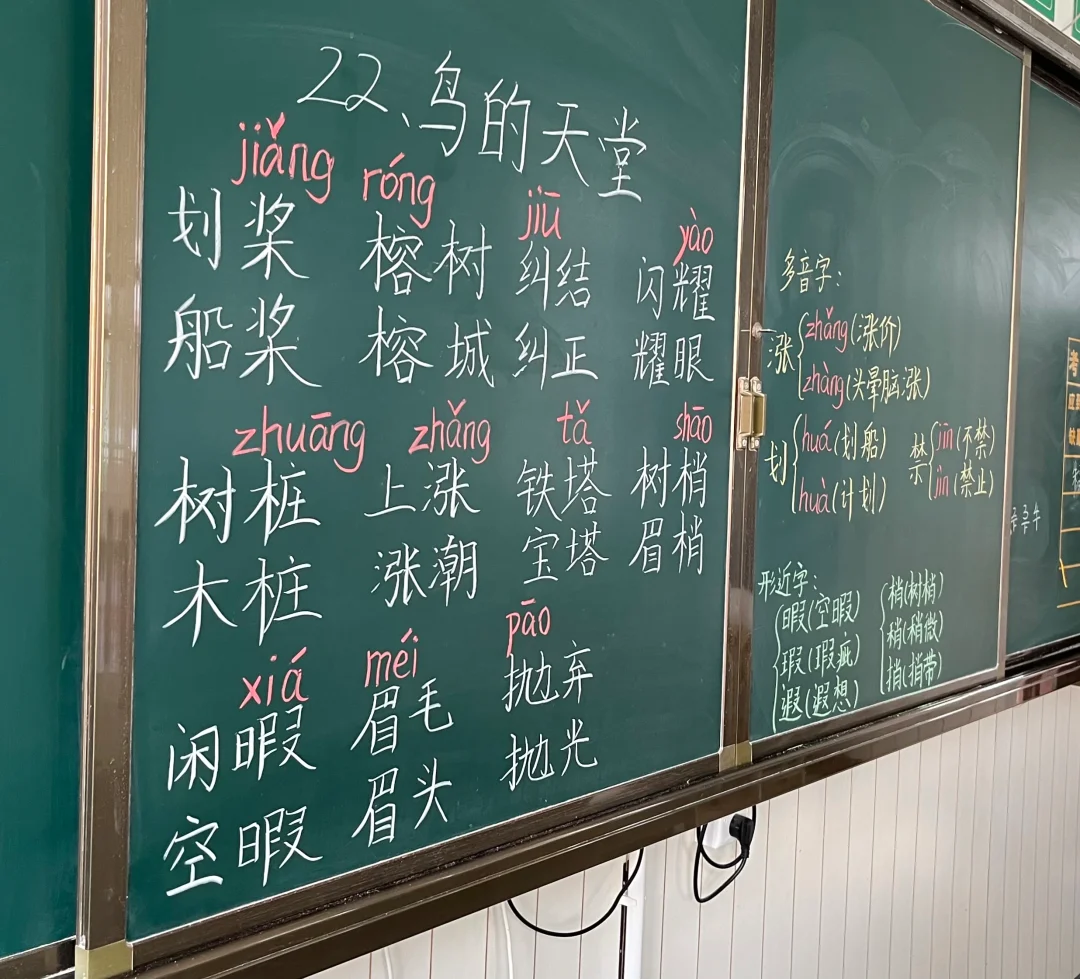 22、鸟的天堂
jiǎng róng jiū yào
划桨 榕树 纠结 闪耀
船桨 榕城 纠正 耀眼
zhuāng zhǎng tǎ shāo
树桩 上涨 铁塔 树梢
木桩 涨潮 宝塔 眉梢
xiá méi pāo
闲暇 眉毛 抛弃
空暇 眉头 抛光
多音字:
涨 zhǎng(涨价)
zhàng(头晕脑涨)
划 huá(划船)
huà(计划)
禁 jīn(不禁)
jìn(禁止)
形近字:
暇(空暇)
瑕(瑕疵)
遐(遐想)
梢(树梢)
稍(稍微)
捎(捎带)
考